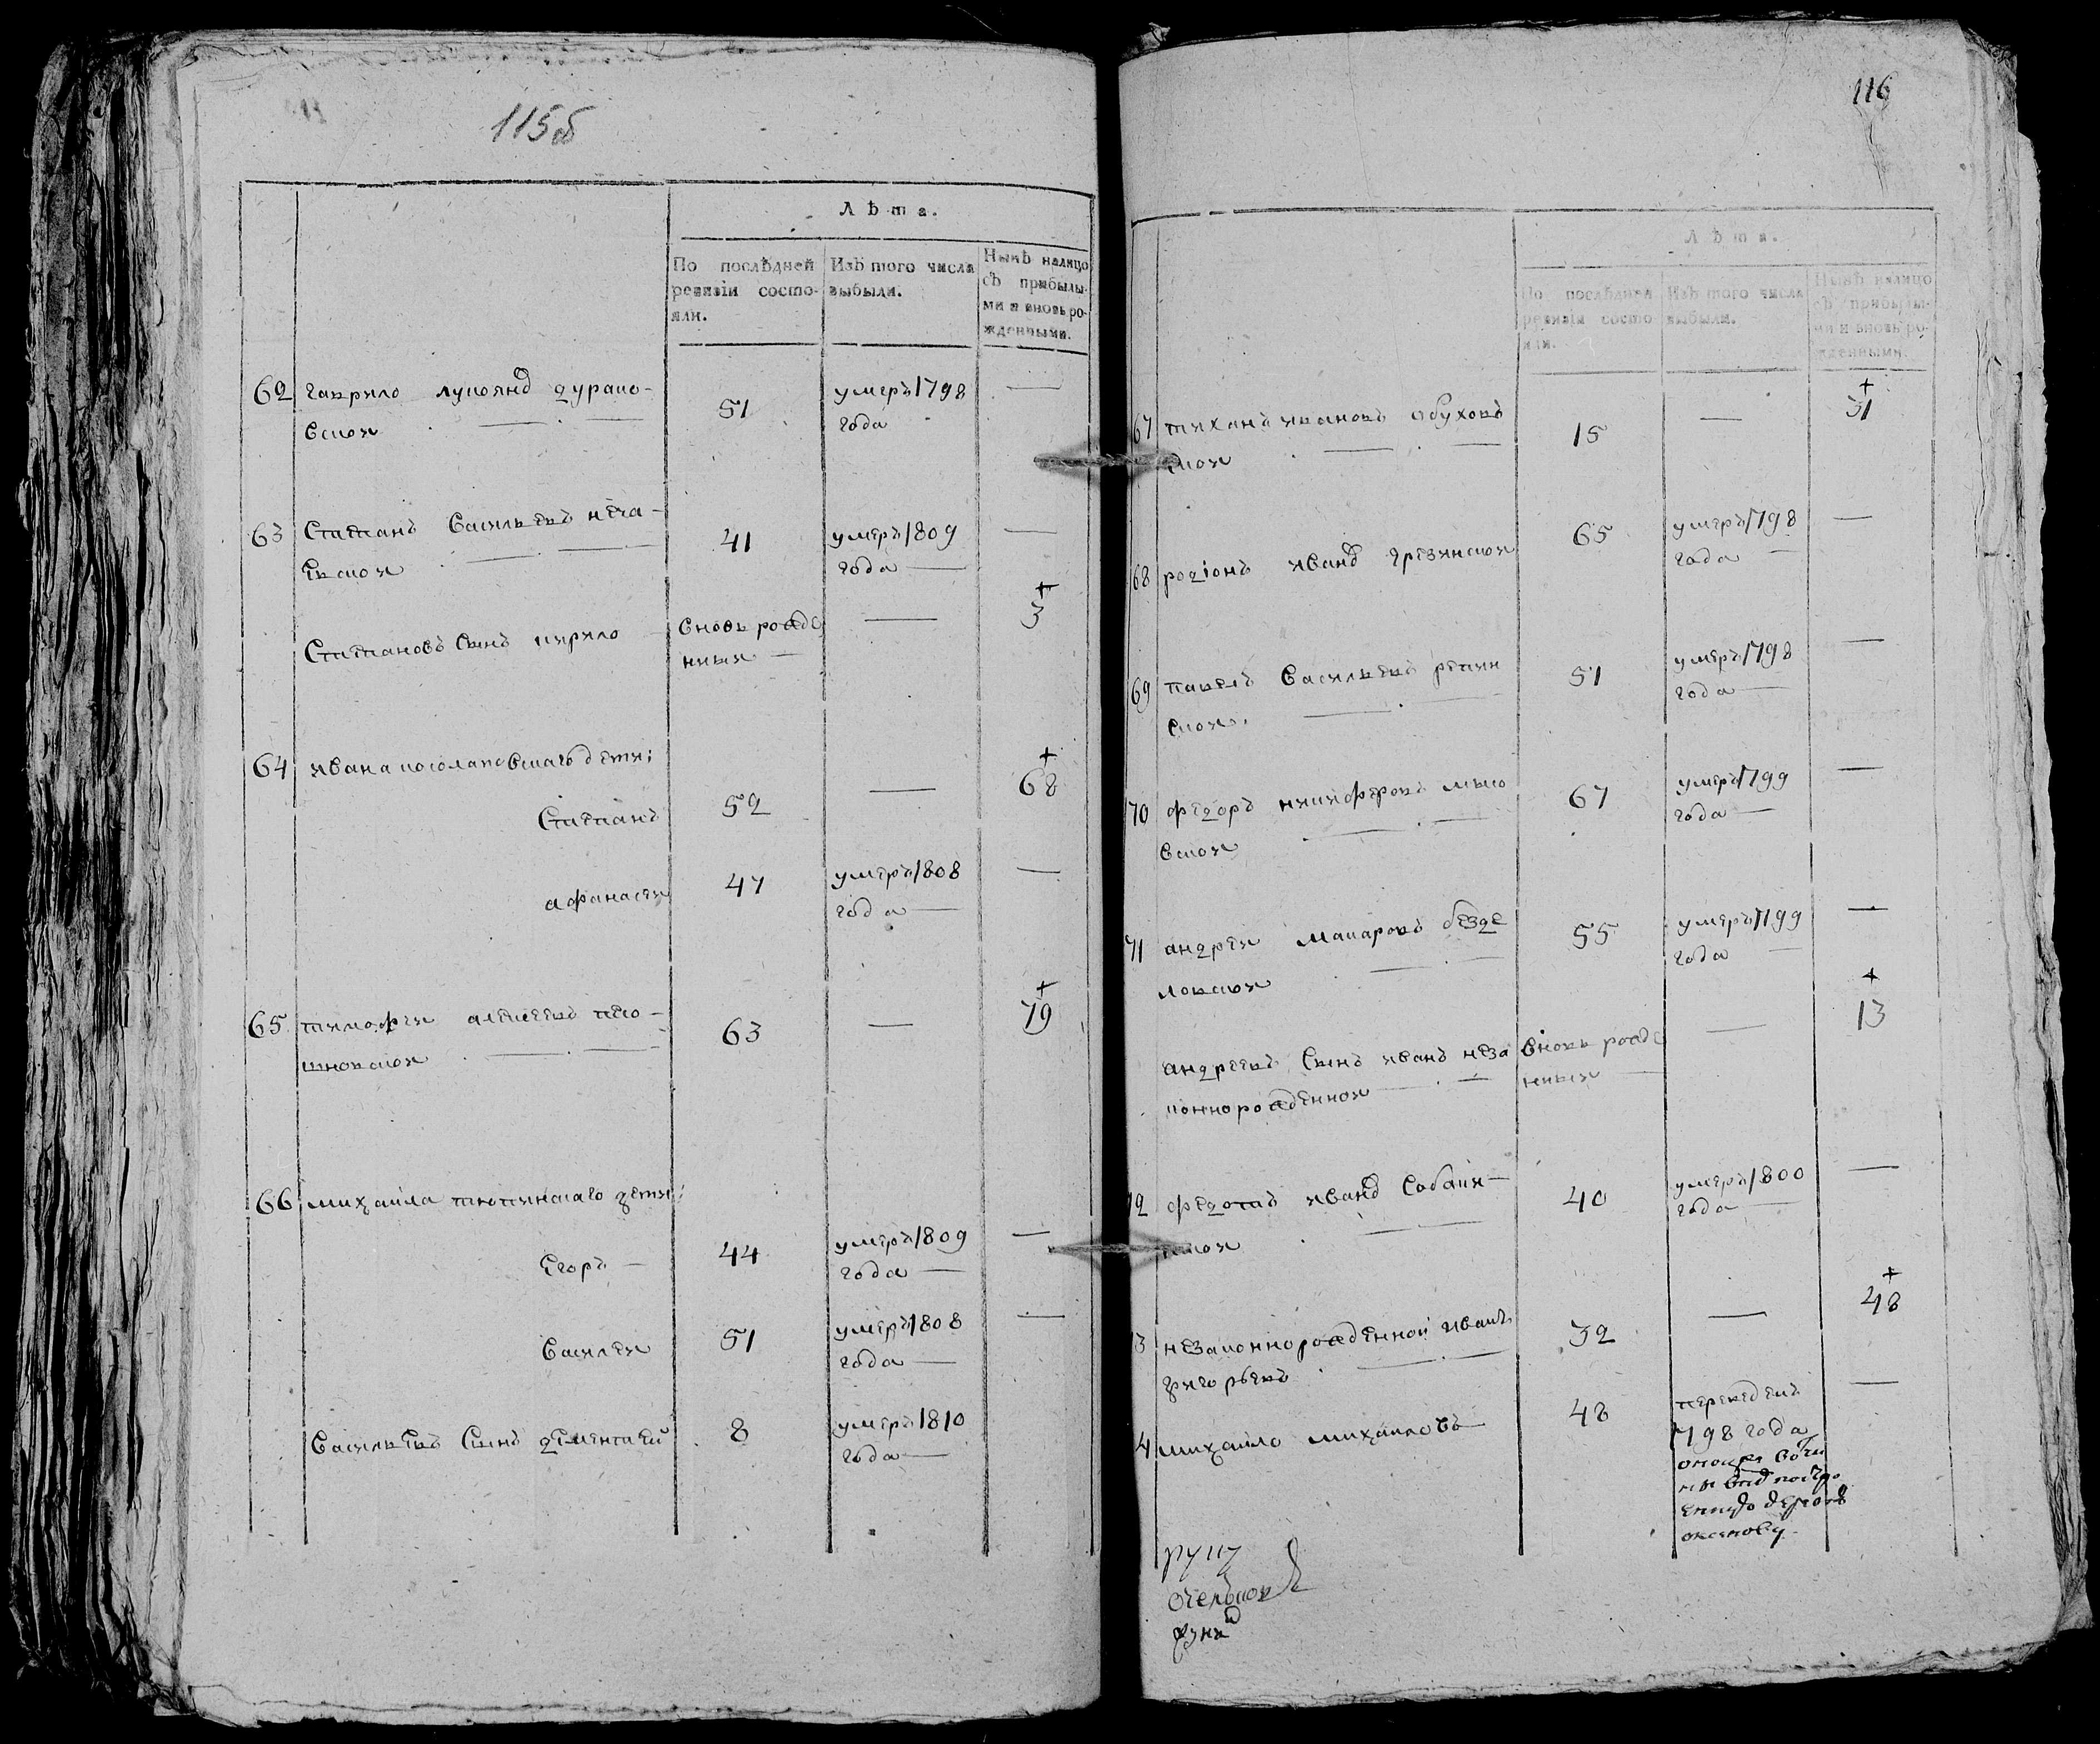 115об
Лѣта.
По послѣдней ревизіи состояли.
Изъ того числа выбыли.
Нынѣ налицо съ прибылыми и вновь рожденными.
62 гаврило лукоянъ дурако-
вской 51 умеръ 1798
года —
63 Степанъ Васильевъ неча-
евской 41 умеръ 1809
года —
Степановъ Сынъ кирило вновь рожде
нный — +
3
64 ивана посолановскаго дети:
Степанъ 52 — +
68
афанасей 47 умеръ 1808
года —
65 тимофей алексеевъ
63 — +
79
66 михаила тютинскаго дети:
Егоръ — 44 умеръ 1809
года —
Василей 51 умеръ 1808
года —
Васильевъ Сынъ дементей 8 умеръ 1810
года —
116
Лѣта.
По послѣдней ревизіи состояли.
Изъ того числа выбыли.
Нынѣ налицо съ прибылыми и вновь рожденными.
67 тиханъ ивановъ обуховъ
ской 15 — +
31
68 родіонъ иванъ грезинской 65 умеръ 1798
года —
69 павелъ Васильевъ репин
ской 51 умеръ 1798
года —
70 федоръ никифоровъ мыко
вской 67 умеръ 1799
года —
71 андрей макаровъ безде
ловской 55 умеръ 1799
года —
андреевъ Сынъ иванъ неза
коннорожденной вновь рожде
нный — +
13
72 федотъ иванъ Собаки-
нской 40 умеръ 1800
года —
3 незаконнорожденной иванъ
григорьевъ 32 — +
48
4 михайло михайловъ 48 переведенъ
1798 года
руку